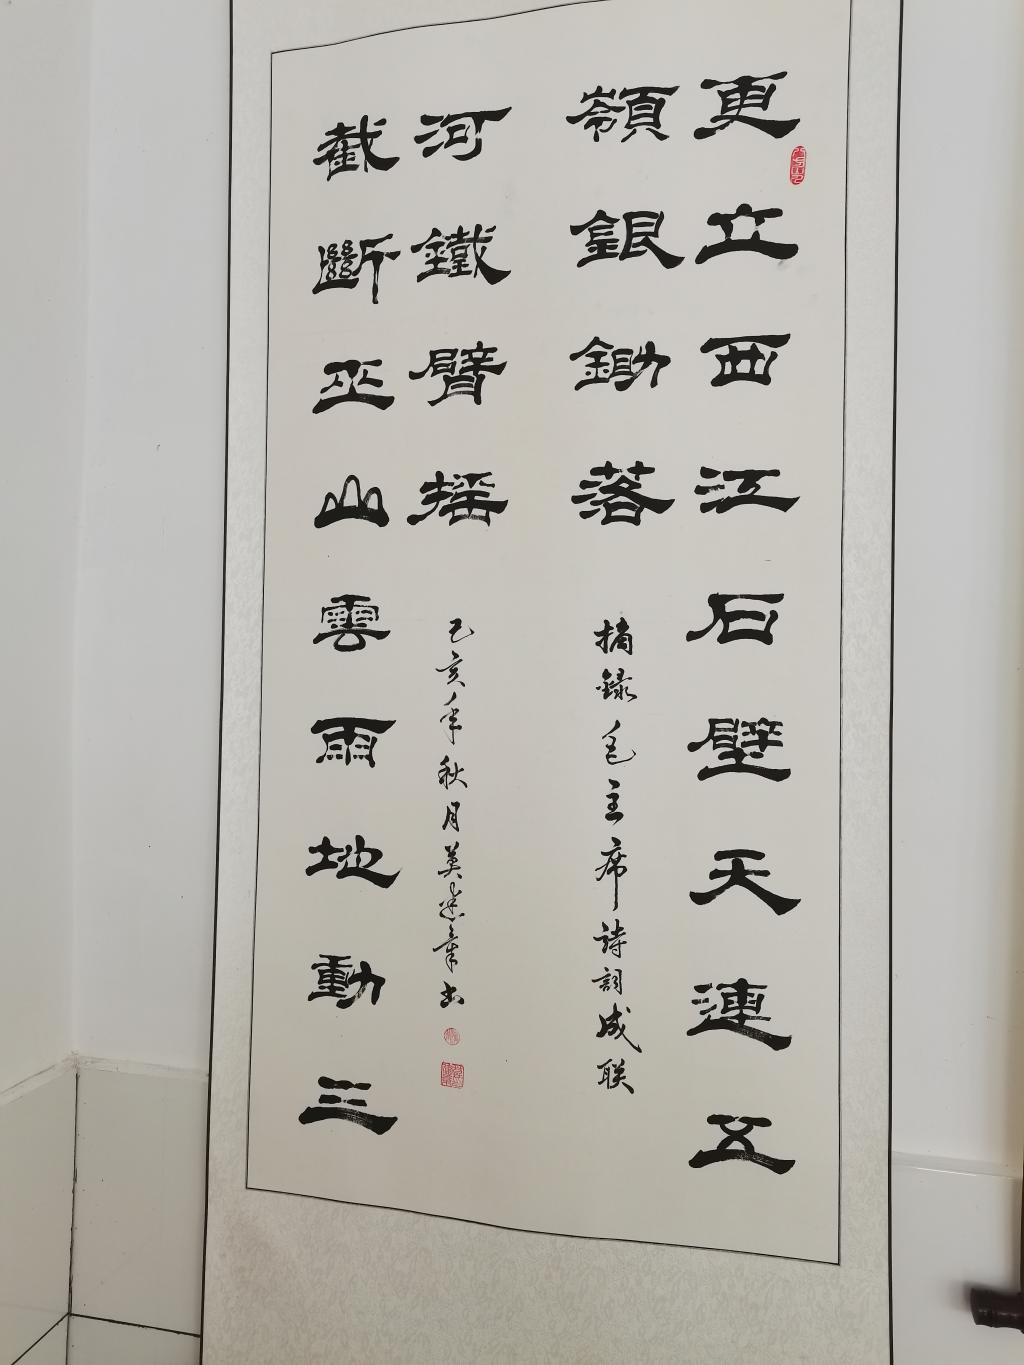 更立西江石壁天連五
嶺銀鋤落
摘録毛主席詩詞成联
截斷巫山雲雨地動三
河鐵臂摇
己亥年秋月 章书